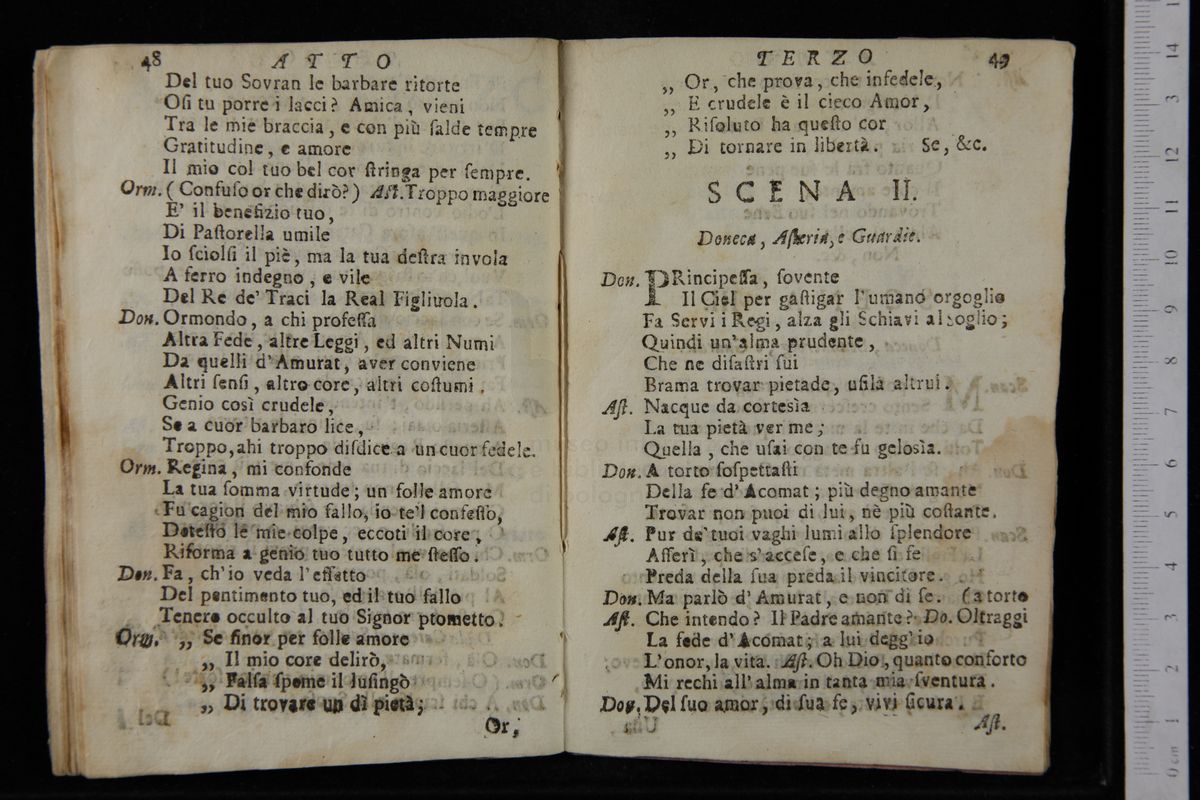 48 ATTO
Del tuo Sovran le barbare ritorte
Oſi tu porre i lacci? Amica, vieni
Tra le mie braccia, e con più ſalde tempre
Gratitudine, e amore
Il mio col tuo bel cor ſtringa per ſempre.
Orm. (Confuſo or che dirò?) Aſt. Troppo maggiore
E' il benefizio tuo,
Di Paſtorella umile
Io ſciolſi il piè, ma la tua deſtra invola
A ferro indegno, e vile
Del Re de' Traci la Real Figliuola.
Don. Ormondo, a chi profeſſa
Altra Fede, altre Leggi, ed altri Numi
Da quelli d'Amurat, aver conviene
Altri ſenſi, altro core, altri coſtumi.
Genio così crudele,
Se a cuor barbaro lice,
Troppo, ahi troppo diſdice a un cuor fedele.
Orm. Regina, mi confonde
La tua ſomma virtude; un folle amore
Fu cagion del mio fallo, io te'l confeſſo,
Deteſto le mie colpe, eccoti il core,
Riforma a genio tuo tutto me ſteſſo.
Don. Fa, ch'io veda l'effetto
Del pentimento tuo, ed il tuo fallo
Tenere occulto al tuo Signor ptometto.
Orm. „ Se finor per folle amore
„ Il mio core delirò,
„ Falſa ſpeme il luſingò
„ Di trovare un dì pietà;
Or,
TERZO 49
„ Or, che prova, che infedele,
„ E crudele è il cieco Amor,
„ Riſoluto ha queſto cor
„ Di tornare in libertà. Se, &c.
SCENA II.
Doneca, Aſteria, e Guardie.
Don. PRincipeſſa, ſovente
Il Ciel per gaſtigar l'umano orgoglio
Fa Servi i Regi, alza gli Schiavi al ſoglio;
Quindi un'alma prudente,
Che ne diſaſtri ſui
Brama trovar pietade, uſila altrui.
Aſt. Nacque da cortesìa
La tua pietà ver me;
Quella, che uſai con te fu gelosìa.
Don. A torto ſoſpettaſti
Della fe d'Acomat; più degno amante
Trovar non puoi di lui, nè più coſtante.
Aſt. Pur de' tuoi vaghi lumi allo ſplendore
Aſſerì, che s'acceſe, e che ſi fe
Preda della ſua preda il vincitore.
Don. Ma parlò d'Amurat, e non di ſe. (a torto
Aſt. Che intendo? Il Padre amante? Do. Oltraggi
La fede d'Acomat; a lui degg'io
L'onor, la vita. Aſt. Oh Dio, quanto conforto
Mi rechi all'alma in tanta mia ſventura.
Don. Del ſuo amor, di ſua fe, vivi ſicura.
Aſt.